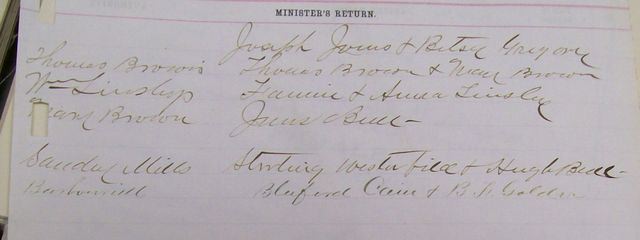 MINISTER'S RETURN.
Joseph Jones & Betsy Gregory
Thomas Brown's Thomas Brown & Mary Brown
Wm Linsley Fannie & Anna Linsley
Mary Brown James Bull
Sanday Mills Sterling Westerfield & Hugh Bull
Barbourville Bluford Cain & B. F. Golden